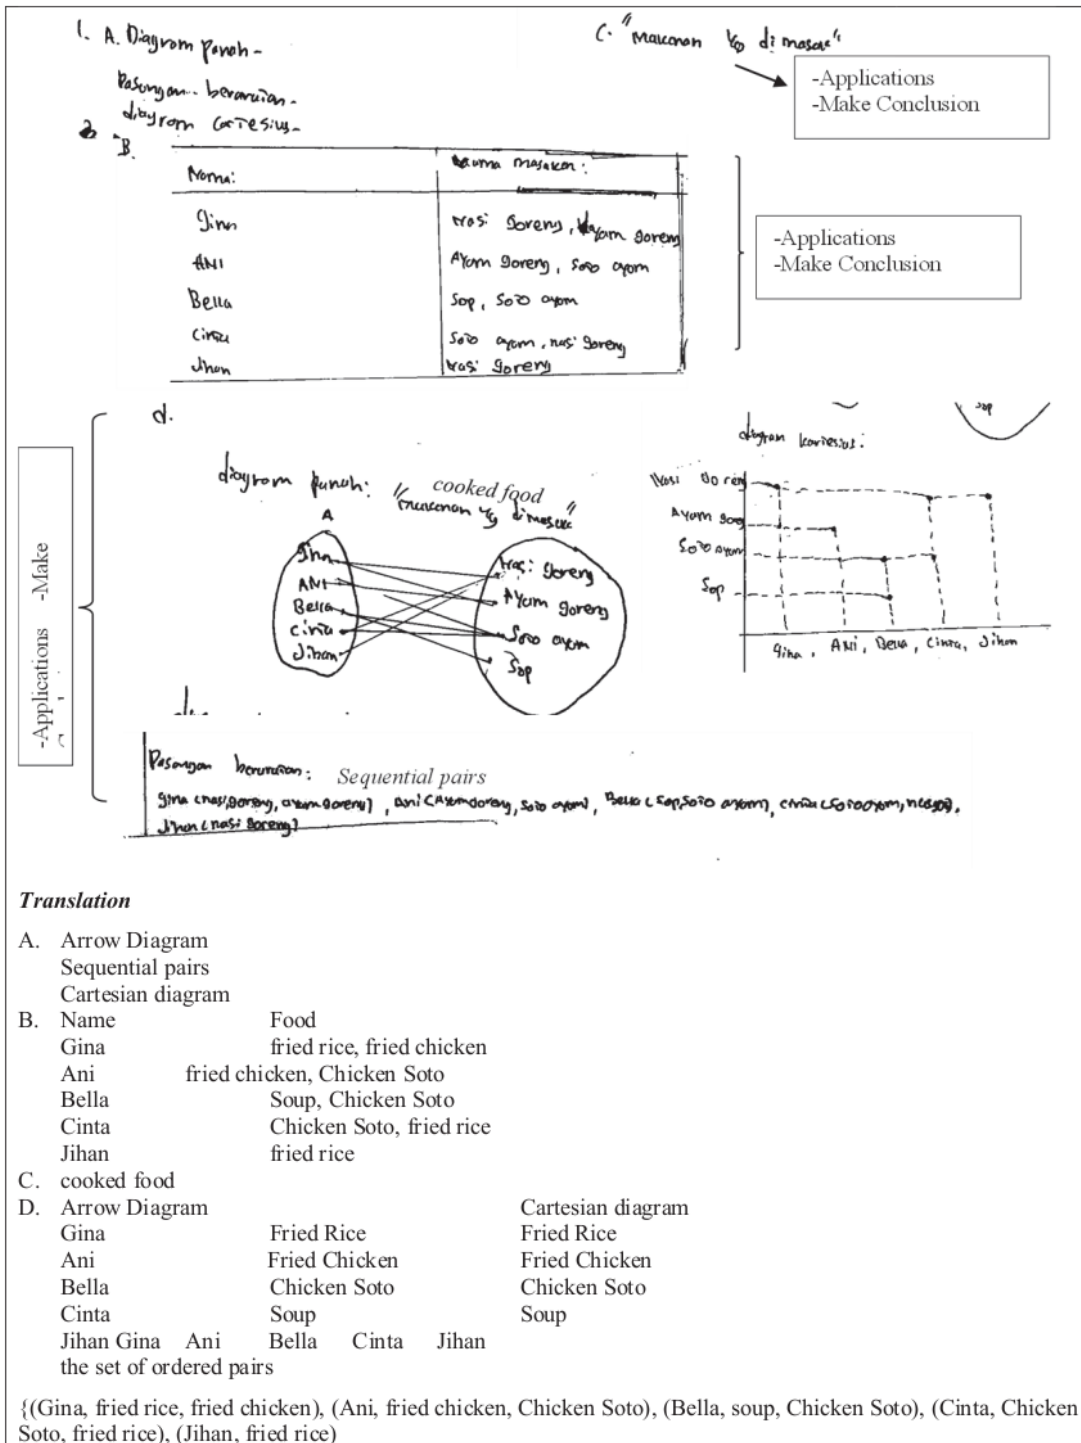 1. A. Diagram panah -
Pasangan berurutan -
diagram cartesius -
C. "makanan yg dimasak"
-Applications
-Make Conclusion
B.
Nama:
nama masakan:
Gina
nasi goreng, Ayam goreng
ANI
Ayam goreng, Soto ayam
Bella
Sop, Soto ayam
Cinta
Soto ayam, nasi goreng
Jihan
nasi goreng
-Applications
-Make Conclusion
-Applications -Make
d.
diagram panah:
cooked food
"makanan yg dimasak"
A
Gina
ANI
Bella
Cinta
Jihan
nasi goreng
Ayam goreng
Soto ayam
Sop
sop
diagram kartesius:
Nasi goreng
Ayam goreng
Soto ayam
Sop
Gina, ANI, Bella, Cinta, Jihan
Pasangan berurutan: Sequential pairs
Gina (nasi goreng, ayam goreng), Ani (Ayam goreng, soto ayam), Bella (Sop, Soto ayam), Cinta (Soto ayam,
Jihan (nasi goreng)
Translation
A. Arrow Diagram
Sequential pairs
Cartesian diagram
B. Name Food
Gina fried rice, fried chicken
Ani fried chicken, Chicken Soto
Bella Soup, Chicken Soto
Cinta Chicken Soto, fried rice
Jihan fried rice
C. cooked food
D. Arrow Diagram Cartesian diagram
Gina Fried Rice Fried Rice
Ani Fried Chicken Fried Chicken
Bella Chicken Soto Chicken Soto
Cinta Soup Soup
Jihan Gina Ani Bella Cinta Jihan
the set of ordered pairs
{(Gina, fried rice, fried chicken), (Ani, fried chicken, Chicken Soto), (Bella, soup, Chicken Soto), (Cinta, Chicken
Soto, fried rice), (Jihan, fried rice)